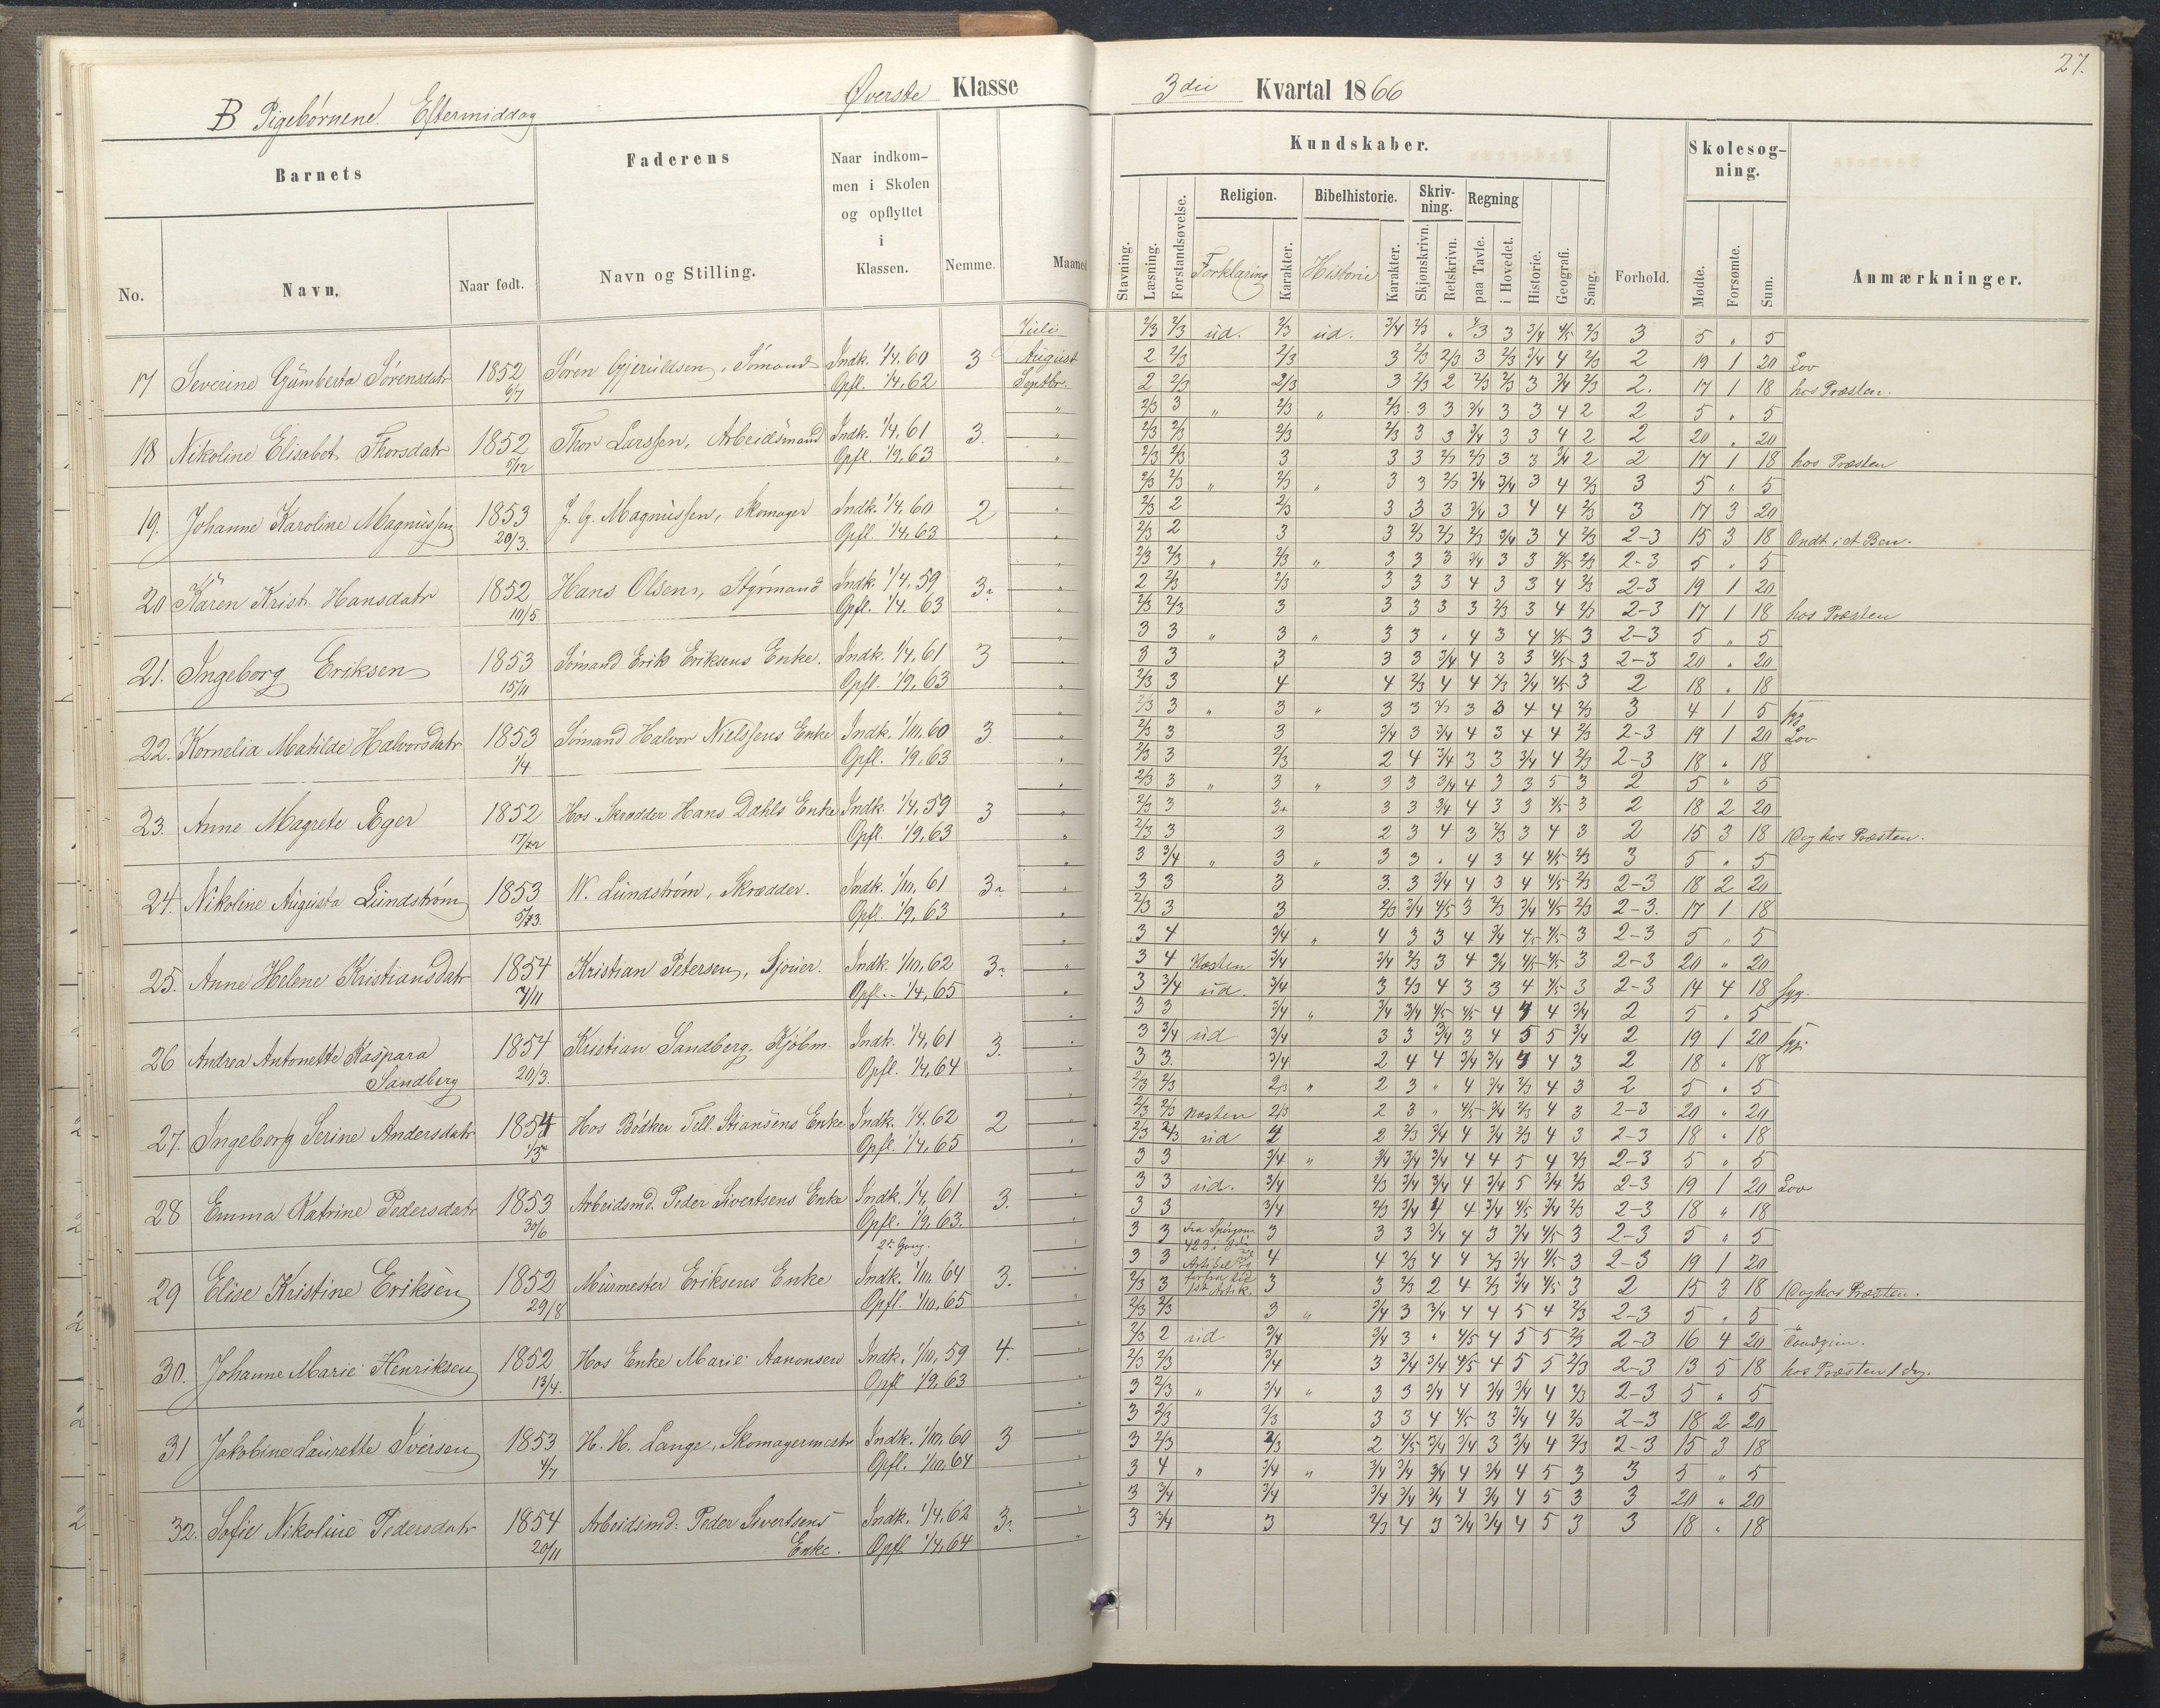 B Pigebørnene Eftermiddag
Øverste Klasse
Barnets
Faderens
Naar indkom-
men i Skolen
og opflyttet
i
Klassen.
No.
Navn.
Naar født.
Navn og Stilling.
Nemme.
Maaned
17 Severine Gumberta Sørensdatr 1852 Søren Gjeruldsen, Sömand Indk. 1/4, 60 3 Juli
August
6/7 Opfl. 1/4, 62 Septbr.
18 Nikoline Elisabet Thorsdatr 1852 Thor Larssen, Arbeidsmand Indk. 1/4, 61 3.
5/12 Opfl. 1/9, 63
19. Johanne Karoline Magnussen 1853 J. G. Magnussen, Skomager Indk. 1/4, 60 2
20/3. Opfl. 1/4, 63
20 Karen Krist. Hansdatr 1852 Hans Olsen, Styrmand Indk. 1/4, 59 3
10/5 Opfl. 1/4. 63
21. Ingeborg Eriksen 1853 Sömand Erik Eriksens Enke. Indk. 1/4, 61 3
15/11 Opfl. 1/9, 63
22. Kornelia Matilde Halvorsdatr 1853 Sömand Halvor Nielssens Enke Indk. 1/10. 60 3
1/4 Opfl. 1/9, 63
23. Anne Magrete Æger 1852 Hos Skrædder Hans Dahls Enke Indk. 1/4, 59 3
Opfl. 1/9, 63
24. Nikoline Augusta Lundstrøm 1853 W. Lundstrøm, Skrædder. Indk. 1/10, 61 3
Opfl. 1/9, 63
25. Anne Helene Kristiansdatr 1854 Kristian Petersen, Sjouer. Indk. 1/10, 62 3
7/11 Opfl. 1/4, 65
26 Andrea Antonette Kaspara 1854 Kristian Sandberg. Kjöbm. Indk. 1/4, 61 3.
Sandberg 20/3. Opfl. 1/4, 64
27. Ingeborg Serine Andersdatr 1854 Hos Bödker Tell. Stiansens Enke Indk. 1/4. 62 2
Opfl. 1/4, 65
28 Emma Katrine Pedersdatr 1853 Arbeidsmd. Peder Sivertsens Enke Indk. 1/4, 61 3.
30/6 Opfl. 1/9, 63.
2n Gang.
29 Elise Kristine Eriksen 1852 Murmester Eriksens Enke Indk. 1/10. 64 3.
29/8 Opfl. 1/10, 65
30. Johanne Marie Henriksen 1852 Hos Enke Marie Aanonsen Indk. 1/10, 59 4.
13/4. Opfl 1/9, 63
31 Jakobine Laurette Iversen 1853 H. H. Lange, Skomagermestr Indk. 1/10, 60 3
4/7 Opfl. 1/10, 64
32. Sofie Nikoline Pedersdatr 1854 Arbeidsmd: Peder Sivertsens Indk. 1/4, 62 3.
20/11 Enke. Opfl 1/4, 64
27.
3die Kvartal 1866
Kundskaber.
Skolesøg-
ning.
Stavning.
Læsning.
Forstandsøvelse.
Religion.
Forklaring
Karakter.
Bibelhistorie.
Historie
Karakter.
Skriv-
ning.
Skjønskrivn.
Retskrivn.
Regning
paa Tavle.
i Hovedet.
Historie.
Geografi.
Sang.
Forhold.
Mødte.
Forsømte.
Sum.
Anmærkninger.
2/3 2/3 ud. 2/3 ud. 3/4 2/3 " 4/3 3 3/4 4/5 2/3 3 5 " 5
2 2/3 2/3 3 2/3 2/3 3 2/3 3/4 4 2/3 2 19 1 20 Lov
2 2/3 2/3 3 2/3 2 2/3 2/3 3 3/4 2/3 2. 17 1 18 hos Præsten.
2/3 3 " 2/3 " 2/3 3 3 3/4 3 3 4 2 2 5 " 5
2/3 2/3 2/3 2/3 3 3 3/4 3 3 4 2 2 20 " 20
2/3 2/3 3 3 3 2/3 2/3 3 3 3/4 2 2 17 1 18 hos Præsten
2/3 2/3 " 2/3 " 3 3 2/3 3/4 3/4 3 4 2/3 3 5 " 5
2/3 2 2/3 3 3 3 3/4 3 4 4 2/3 3 17 3 20
2/3 2 3 3 2/3 2/3 2/3 3/4 3 4 2/3 2-3 15 3 18 Ondt i et Ben.
2/3 2/3 " 2/3 " 3 3 3 3/4 3 3 4/5 2/3 2-3 5 " 5
2 2/3 2/3 3 3 3 4 3 3 4 2/3 2-3 19 1 20
2/3 2/3 3 3 3 3 3 2/3 3 4 2/3 2-3 17 1 18 hos Præsten
3 3 " 3 " 3 3 " 4 3 4 4/5 3 2-3 5 " 5
3 3 3 3 3 3/4 4 3 3 4/5 3 2-3 20 " 20
2/3 3 4 4 2/3 4 4 2/3 3/4 4/5 3 2 18 " 18
2/3 3 " 3 " 3 3 2/3 3 3 4 4 2/3 3 4 1 5 syg
2/3 3 3 3/4 3 3/4 4 3 4 4 2/3 2-3 19 1 20 Lov
2/3 3 2/3 2 4 3/4 3 3 3/4 4 2/3 2-3 18 " 18
2/3 3 " 3 " 3 3 3/4 4 3 3 5 3 2 5 " 5
2/3 3 3 3 3 3/4 4 3 3 4/5 3 2 18 2 20
2/3 3 3 2 3 4 3 2/3 3 4 3 2 15 3 18 1 Dag hos Præsten.
3 3/4 " 3 " 3 3 " 4 3 4 4/5 2/3 3 5 " 5
3 3 3 3. 3 3/4 4 3 4 4/5 2/3 2-3 18 2 20
2/3 3 3 2/3 3/4 4/5 3 2/3 3/4 4/5 2/3 2-3. 17 1 18
3 4 3/4 " 4 3 3 4 3/4 4/5 4/5 3 2-3 5 " 5
3 4 Næsten 3/4 3/4 2/3 3 4 3/4 4/5 4/5 3 2-3 20 " 20
3 3/4 ud. 3/4 3 2/3 4 3 3 4 4/5 3 2-3 14 4 18 syg.
3 3 3/4 " 3/4 3/4 4/5 4/5 4 4 4 3/4 2 5 " 5
3 3/4 ud 3/4 3 3 3/4 3 4 5 5 3/4 2 19 1 20 syg.
3 3. 3/4 2 4 4 3/4 3/4 4 4 3 2 18 " 18
2/3 2/3 2/3 " 2 3 " 4 3/4 2/3 4 3 2 5 " 5
2/3 2/3 Næsten 2/3 2 3 " 4/5 3/4 2/3 4 3 2-3 20 " 20
2/3 2/3 ud 2 2 2/3 3/4 4 3/4 2/3 4 3 2-3 18 " 18
3 3 3/4 " 3/4 3/4 3/4 4 4 5 4 2/3 2-3 5 " 5
3 3 ud. 3/4 2/3 3/4 3/4 4 3/4 5 3/4 2/3 2-3 19 1 20 Lov
3 3 3/4 2/3 3/4 4 4 3/4 4/5 3/4 2/3 2-3 18 " 18
3 3 Fra Spörgsm. 3 3 3 3/4 4 3 3/4 4/5 3 2-3 5 " 5
3 3 4 4 2/3 4 4 2/3 3/4 4/5 3 2-3 19 1 20
2/3 3 3 3 2/3 2 4 2/3 3/4 4/5 3 2 15 3 18 1 Dag hos Præsten.
2/3 2/3 3 " 3/4 3 3/4 4 4 5 4 2/3 2-3 5 " 5
2/3 2 ud 3/4 3/4 3 " 4/5 4 5 5 2/3 2-3 16 4 20
2/3 2/3 3/4 3 3/4 3/4 4/5 4 5 5 2/3 2-3 13 5 18 hos Præsten 1 Dag.
3 2/3 " 3/4 " 3 3 3/4 4 3/4 3/4 4 2/3 2-3 5 " 5
3 2/3 2/3 3 3 4 4/5 3 3/4 4 2/3 2-3 18 2 20
3 2/3 2/3 2 4/5 3/4 3/4 3 3/4 4 2/3 2-3 15 3 18
3 4 " 3/4 " 3/4 3/4 3/4 4 3/4 4 5 3 3 5 " 5
3 3/4 3/4 3/4 3/4 3/4 4 3/4 4 5 3 3 20 " 20
3 3/4 3 2/3 4 3 3/4 3/4 4 5 3 3 18 " 18